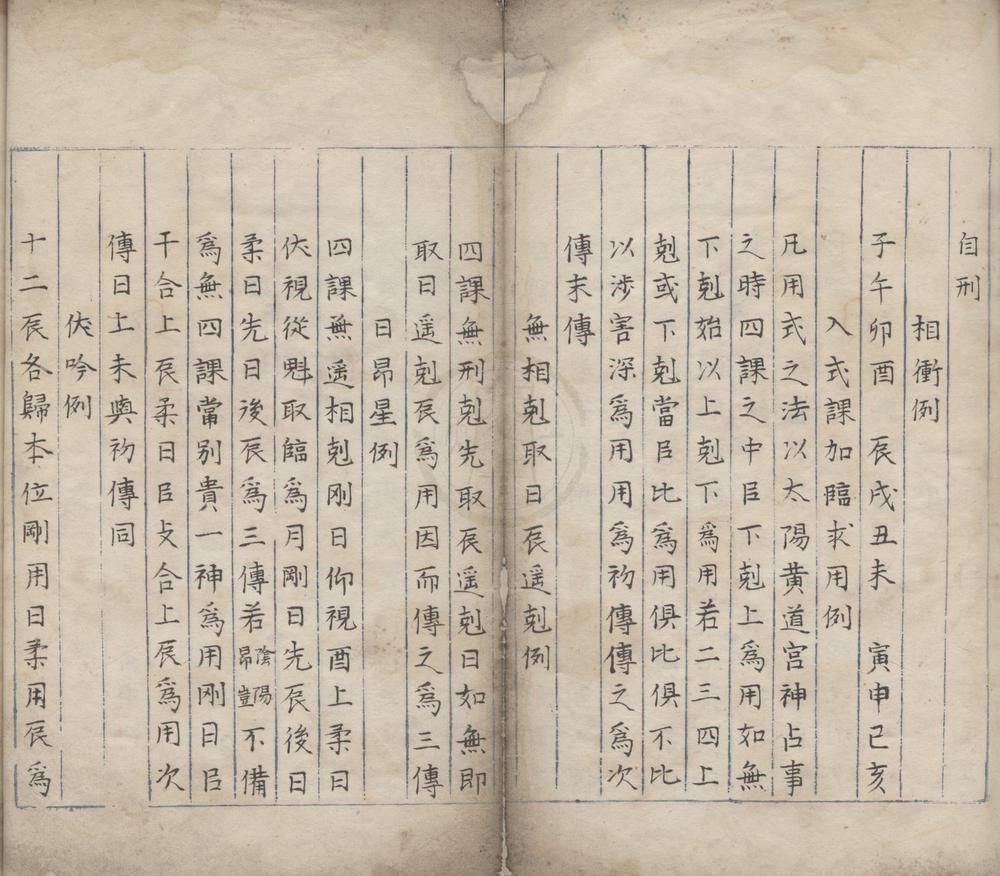 自刑
相衝例
子午卯酉　辰戌丑未　寅申已亥
入式課加臨求用例
凡用式之法以太陽黄道宫神占事
之時四課之中㠯下剋上爲用如無
下剋始以上剋下爲用若二三四上
剋或下剋當㠯比爲用俱比俱不比
以涉害深爲用用爲初傳傳之爲次
傳末傳
無相剋取日辰遥剋例
四課無刑剋先取辰遥剋日如無即
取日遥剋辰爲用因而傳之爲三傳
日昂星例
四課無遥相剋刚日仰視酉上柔日
伏視從魁取臨爲月剛日先辰後日
柔日先日後辰爲三傳若陰陽昂豈不備
爲無四課當别貴一神爲用刚日㠯
干合上辰柔日㠯支合上辰爲用次
傳日上末與初傳同
伏吟例
十二辰各歸本位剛用日柔用辰爲